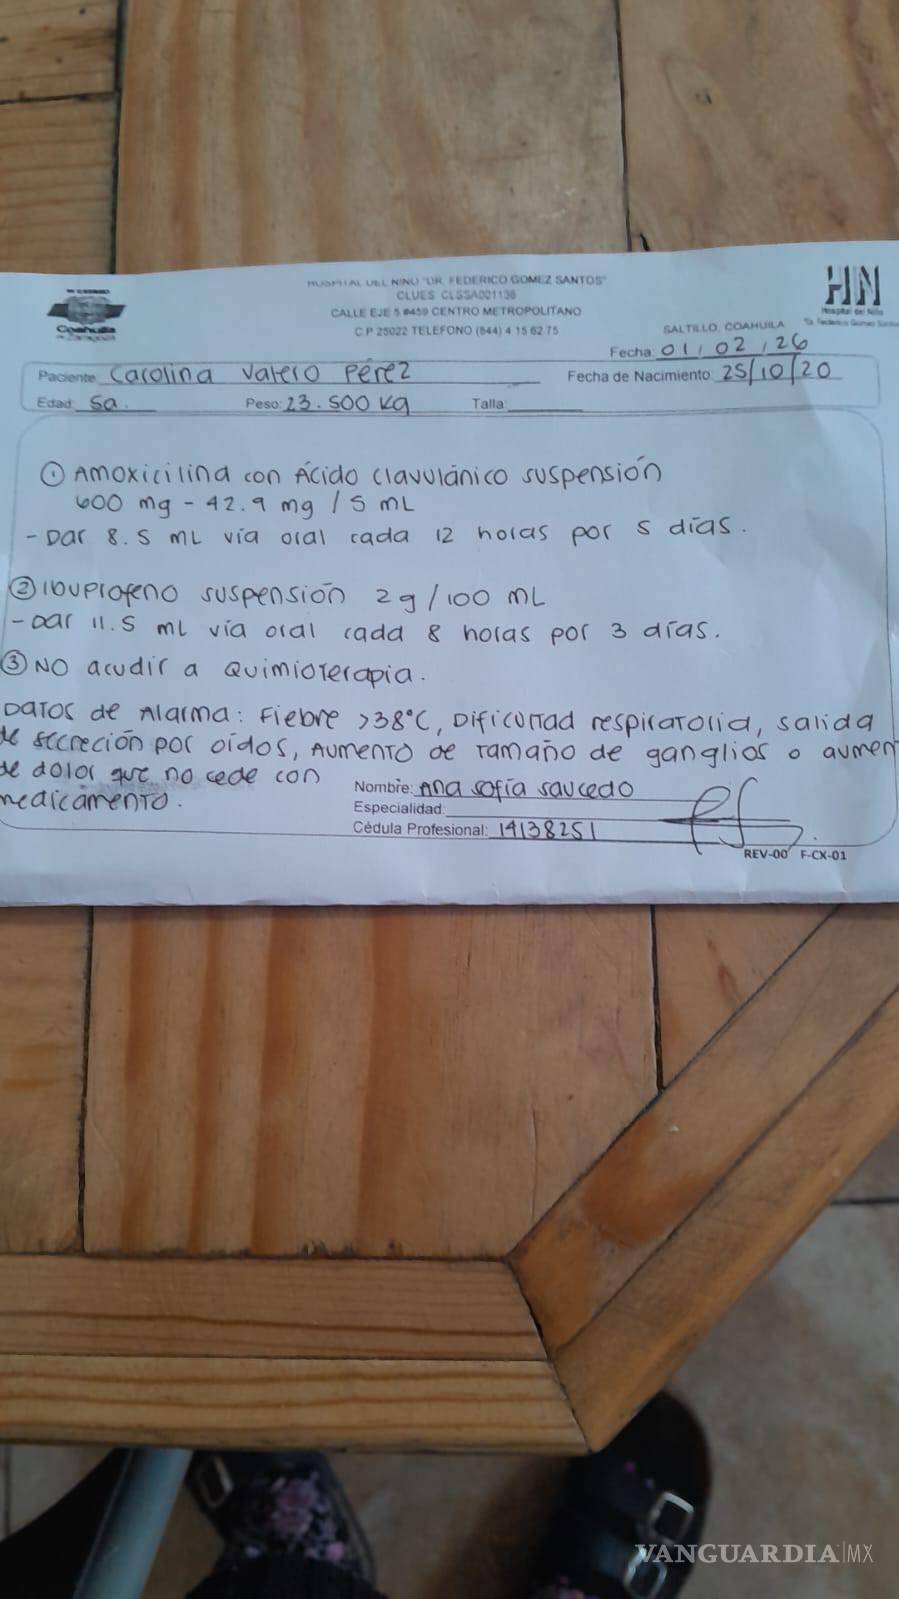 HOSPITAL DEL NIÑO "DR. FEDERICO GOMEZ SANTOS"
CLUES CLSSA001138
CALLE EJE 5 #459 CENTRO METROPOLITANO
C.P 25022 TELEFONO (844) 4 15 62 75
Coahuila
de Zaragoza
HN
Hospital del Niño
"Dr. Federico Gomez Santos"
SALTILLO, COAHUILA
Fecha: 01/02/26
Paciente: Carolina Valero Pérez Fecha de Nacimiento: 25/10/20
Edad: 5a. Peso: 23.500 kg Talla:
① Amoxicilina con Ácido Clavulánico suspensión
600 mg - 42.9 mg / 5 mL
- Dar 8.5 mL vía oral cada 12 horas por 5 días.
② Ibuprofeno suspensión 2g/100 mL
- Dar 11.5 ml vía oral cada 8 horas por 3 días.
③ NO acudir a Quimioterapia.
Datos de Alarma: Fiebre >38°C, Dificultad respiratoria, salida
de secreción por oídos, Aumento de tamaño de ganglios o aumen
de dolor que no cede con
medicamento.
Nombre: Ana Sofía Saucedo
Especialidad:
Cédula Profesional: 14138251
REV-00 F-CX-01
VANGUARDIA|MX